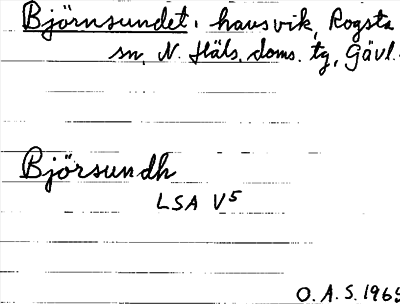 Björnsundet, havsvik, Rogsta
sn, N. Häls. doms. tg, Gävl.
Björsundh
LSA V5
O.A.S. 1965